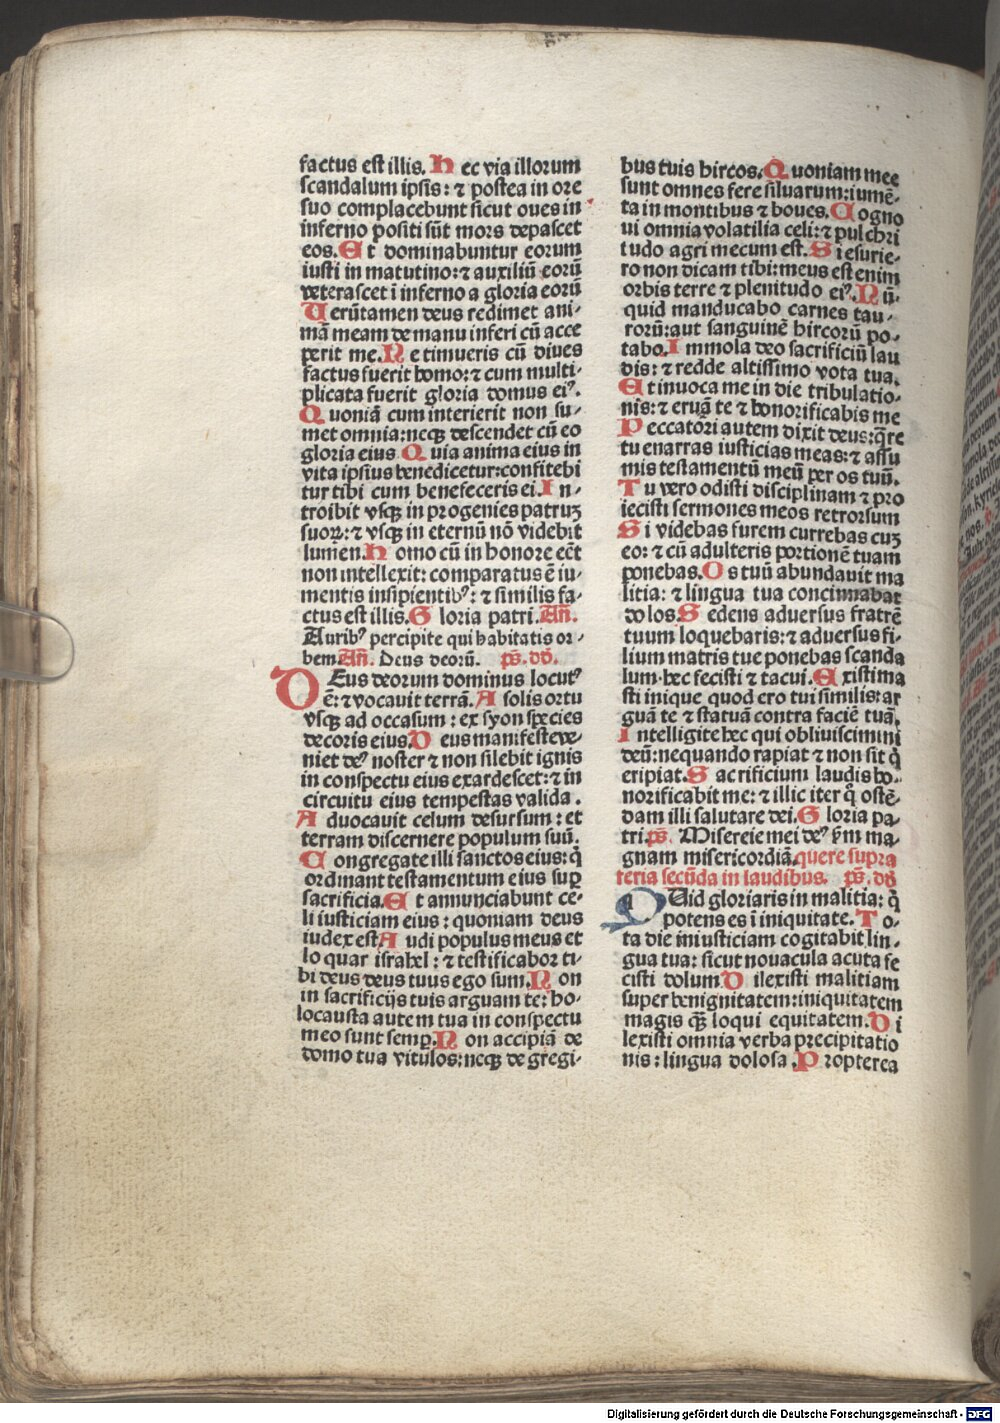 factus est illis. Hec via illorum
scandalum ipsis: ⁊ postea in ore
suo complacebunt sicut oues in
inferno positi sūt mors depascet
eos. Et dominabuntur eorum
iusti in matutino: ⁊ auxiliū eorū
veterascet ī inferno a gloria eorū
Uerūtamen deus redimet ani-
mā meam de manu inferi cū acce
perit me. Ne timueris cū diues
factus fuerit homo: ⁊ cum multi-
plicata fuerit gloria domus eiꝰ.
Quoniā cum interierit non su-
met omnia: neqꝫ descendet cū eo
gloria eius Quia anima eius in
vita ipsius benedicetur: confitebi
tur tibi cum benefeceris ei. In-
troibit vsqꝫ in progenies patruꝫ
suoꝝ: ⁊ vsqꝫ in eternū nō videbit
lumen. Homo cū in honore eēt
non intellexit: comparatus ē iu-
mentis insipientibꝰ: ⁊ similis fa-
ctus est illis. Gloria patri. Añ.
Auribꝰ percipite qui habitatis or-
bem Añ. Deus deorū. ps̄. dd̄.
DEus deorum dominus locutꝰ
ē: ⁊ vocauit terrā. A solis ortu
vsqꝫ ad occasum: ex syon species
decoris eius. Deus manifeste ve-
niet deꝰ noster ⁊ non silebit ignis
in conspectu eius exardescet: ⁊ in
circuitu eius tempestas valida.
Aduocauit celum desursum: et
terram discernere populum suū.
Congregate illi sanctos eius: q̄
ordinant testamentum eius suꝑ
sacrificia. Et annunciabunt ce-
li iusticiam eius: quoniam deus
iudex est Audi populus meus et
loquar israhel: ⁊ testificabor ti-
bi deus deus tuus ego sum. Non
in sacrificijs tuis arguam te: ho-
locausta autem tua in conspectu
meo sunt semꝑ. Non accipiā de
domo tua vitulos: neqꝫ de gregi-
bus tuis hircos. Quoniam mee
sunt omnes fere siluarum: iumē-
ta in montibus ⁊ boues. Cogno
ui omnia volatilia celi: ⁊ pulchri
tudo agri mecum est. Si esurie-
ro non dicam tibi: meus est enim
orbis terre ⁊ plenitudo eiꝰ. Nū-
quid manducabo carnes tau-
rorū: aut sanguinē hircorū po-
tabo. Immola deo sacrificiū lau
dis: ⁊ redde altissimo vota tua.
Et inuoca me in die tribulatio-
nis: ⁊ eruā te ⁊ honorificabis me
Peccatori autem dixit deus: q̄re
tu enarras iusticias meas: ⁊ assu
mis testamentū meū per os tuū.
Tu vero odisti disciplinam ⁊ pro
iecisti sermones meos retrorsum
Si videbas furem currebas cuꝫ
eo: ⁊ cū adulteris portionē tuam
ponebas. Os tuū abundauit ma
litia: ⁊ lingua tua concinnabat
dolos. Sedens aduersus fratrē
tuum loquebaris: ⁊ aduersus fi-
lium matris tue ponebas scanda
lum. hec fecisti ⁊ tacui. Existima
sti inique quod ero tui similis: ar
guā te ⁊ statuā contra faciē tuā.
Intelligite hec qui obliuiscimini
deū: nequando rapiat ⁊ non sit q̇
eripiat. Sacrificium laudis ho-
norificabit me: ⁊ illic iter q̇ ostē-
dam illi salutare dei. Gloria pa-
tri. ps̄. Misereie mei deꝰ ẜm ma-
gnam misericordiā. quere supra
feria secūda in laudibus. ps̄. dd̄
QUid gloriaris in malitia: q̇
potens es ī iniquitate. To-
ta die iniusticiam cogitabit lin-
gua tua: sicut nouacula acuta fe
cisti dolum Dilexisti malitiam
super benignitatem: iniquitatem
magis qꝫ̄ loqui equitatem. Di
lexisti omnia verba precipitatio
nis: lingua dolosa. Propterea
Digitalisierung gefördert durch die Deutsche Forschungsgemeinschaft - DFG